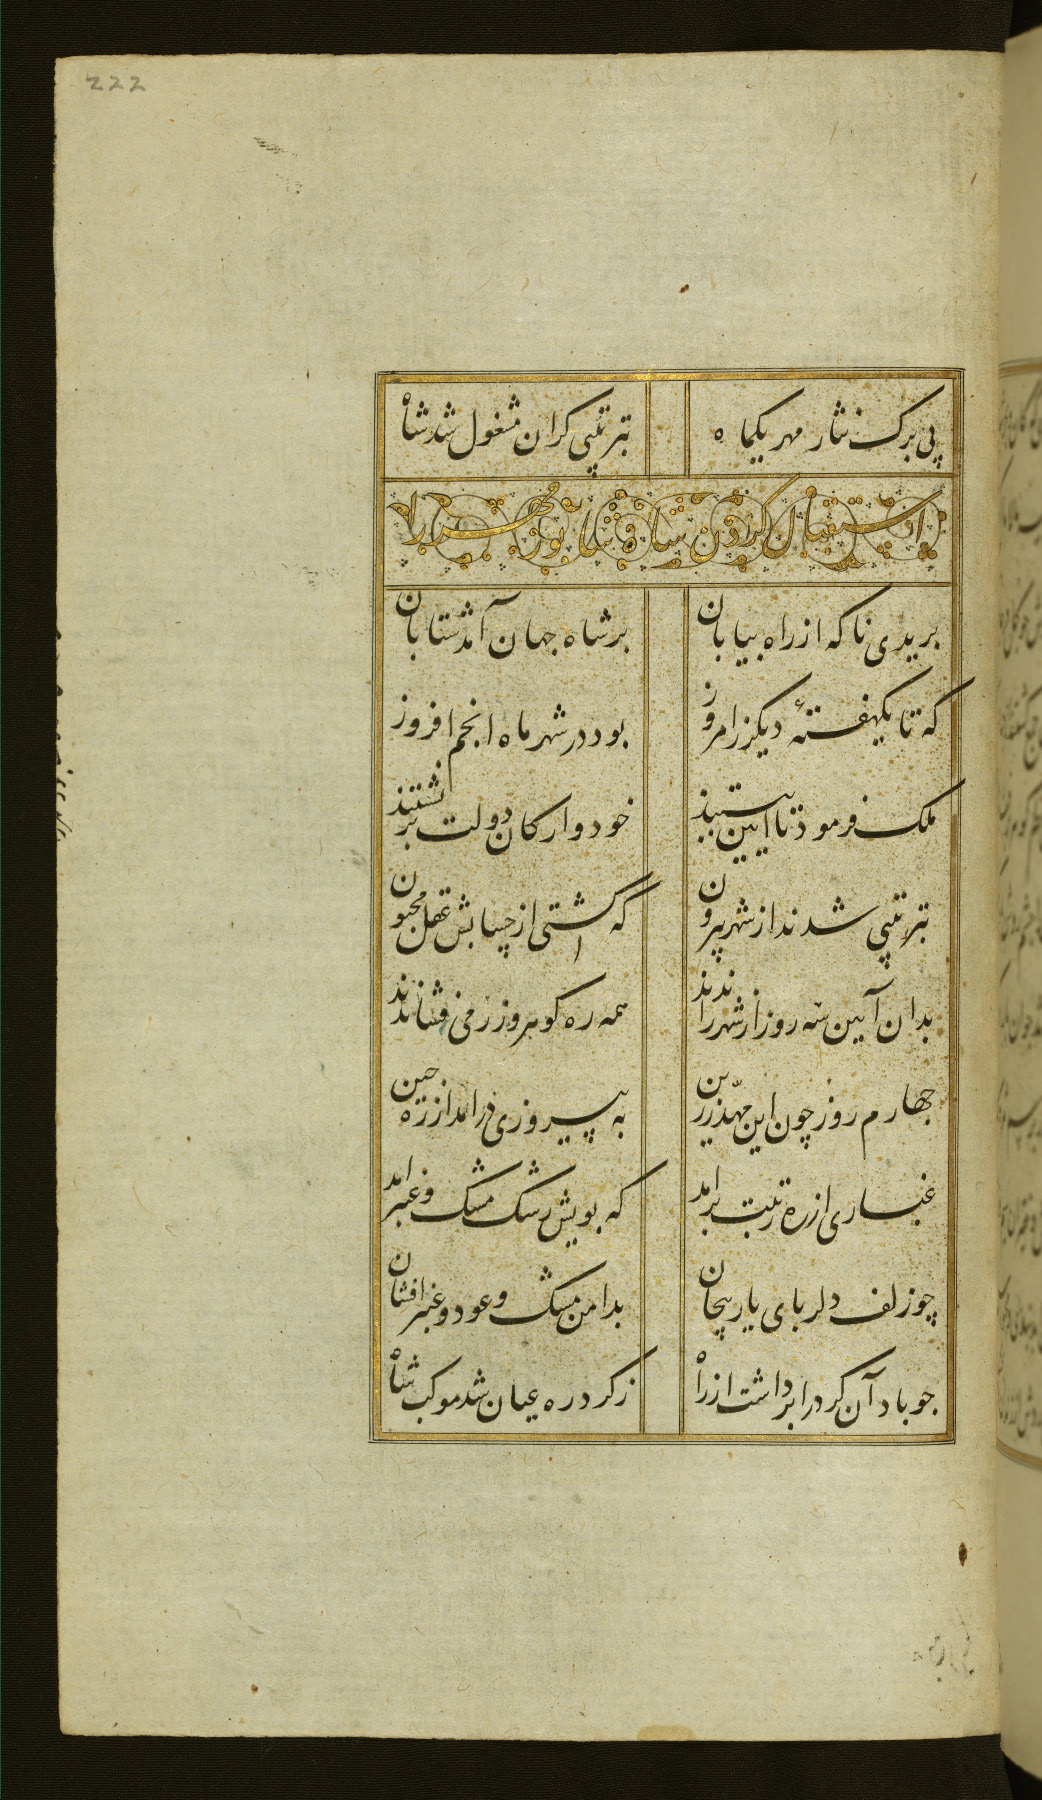 222
پی برک نثار مهر یکماه
بترتیبی کران مشغول شد شاه
استقبال کردن شاه شاپور مهر را
بریدی ناکه از راه بیابان
بر شاه جهان آمد شتابان
که تا یکهفتهٔ دیکر ز امروز
بود در شهر ماه انجم افروز
ملک فرمود تا ایین ببستند
خود و ارکان دولت برنشستند
بترتیبی شدند از شهر بیرون
که کشتی از حسابش عقل مجنون
بدان آیین سه روز از شهر راندند
همه ره کوهر و زر می فشاندند
چهارم روز چون این مهد زرین
به پیروزی درامد از ره چین
غباری از ره تبت برامد
که بویش رشک مشک و عنبر امد
چو زلف دلربای یار پیچان
بدامن مشک و عود و عنبر افشان
چو باد آن کرد را برداشت از راه
ز کرد ره عیان شد موکب شاه